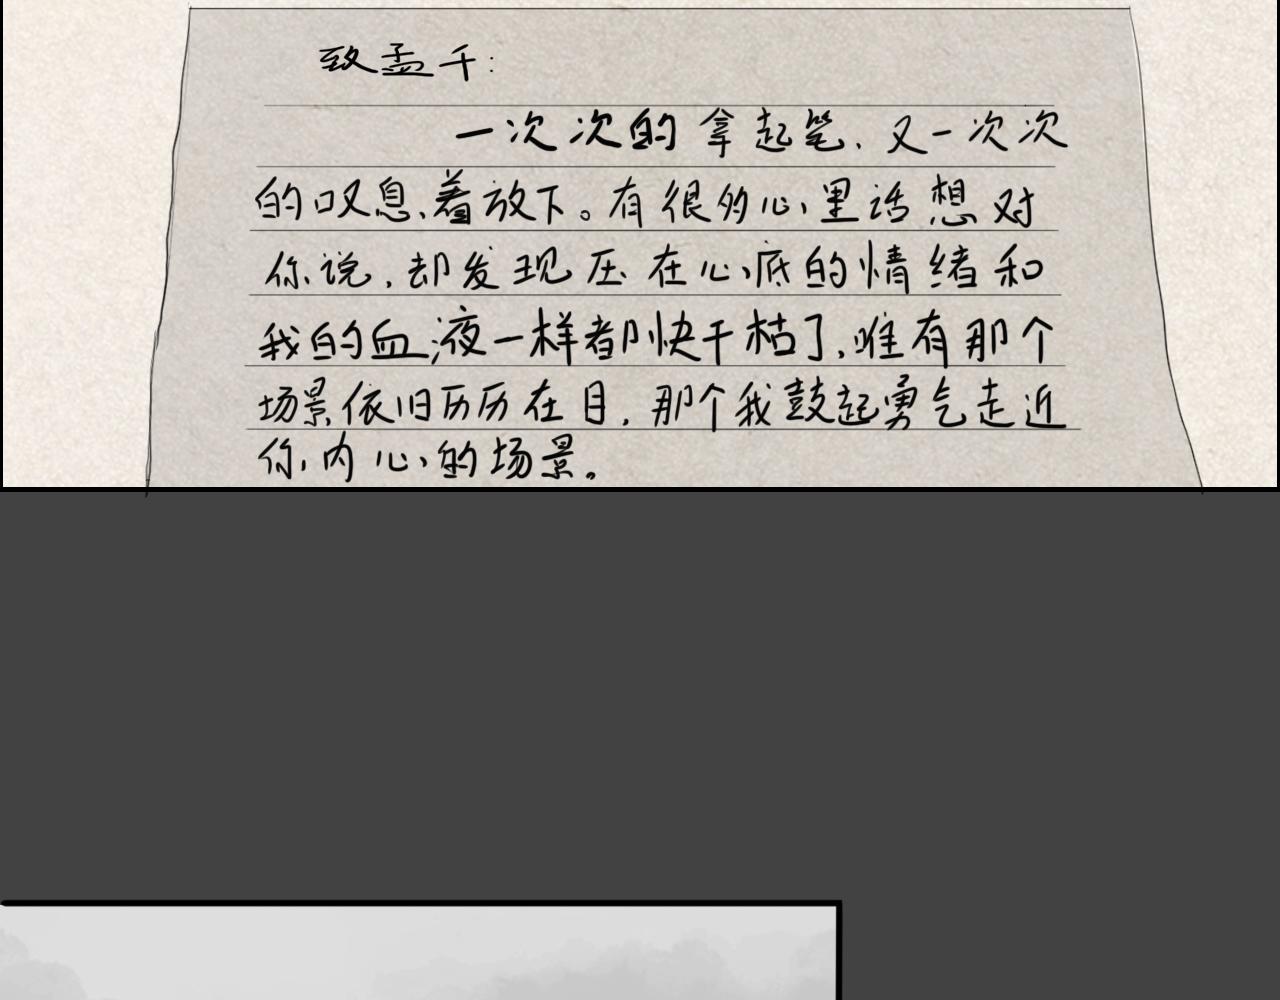 致孟千:
一次次的拿起笔、又一次次
的叹息、着放下。有很多心里话想对
你说,却发现压在心底的情绪和
我的血液一样都快干枯了,唯有那个
场景依旧历历在目,那个我鼓起勇气走近
你内心的场景。